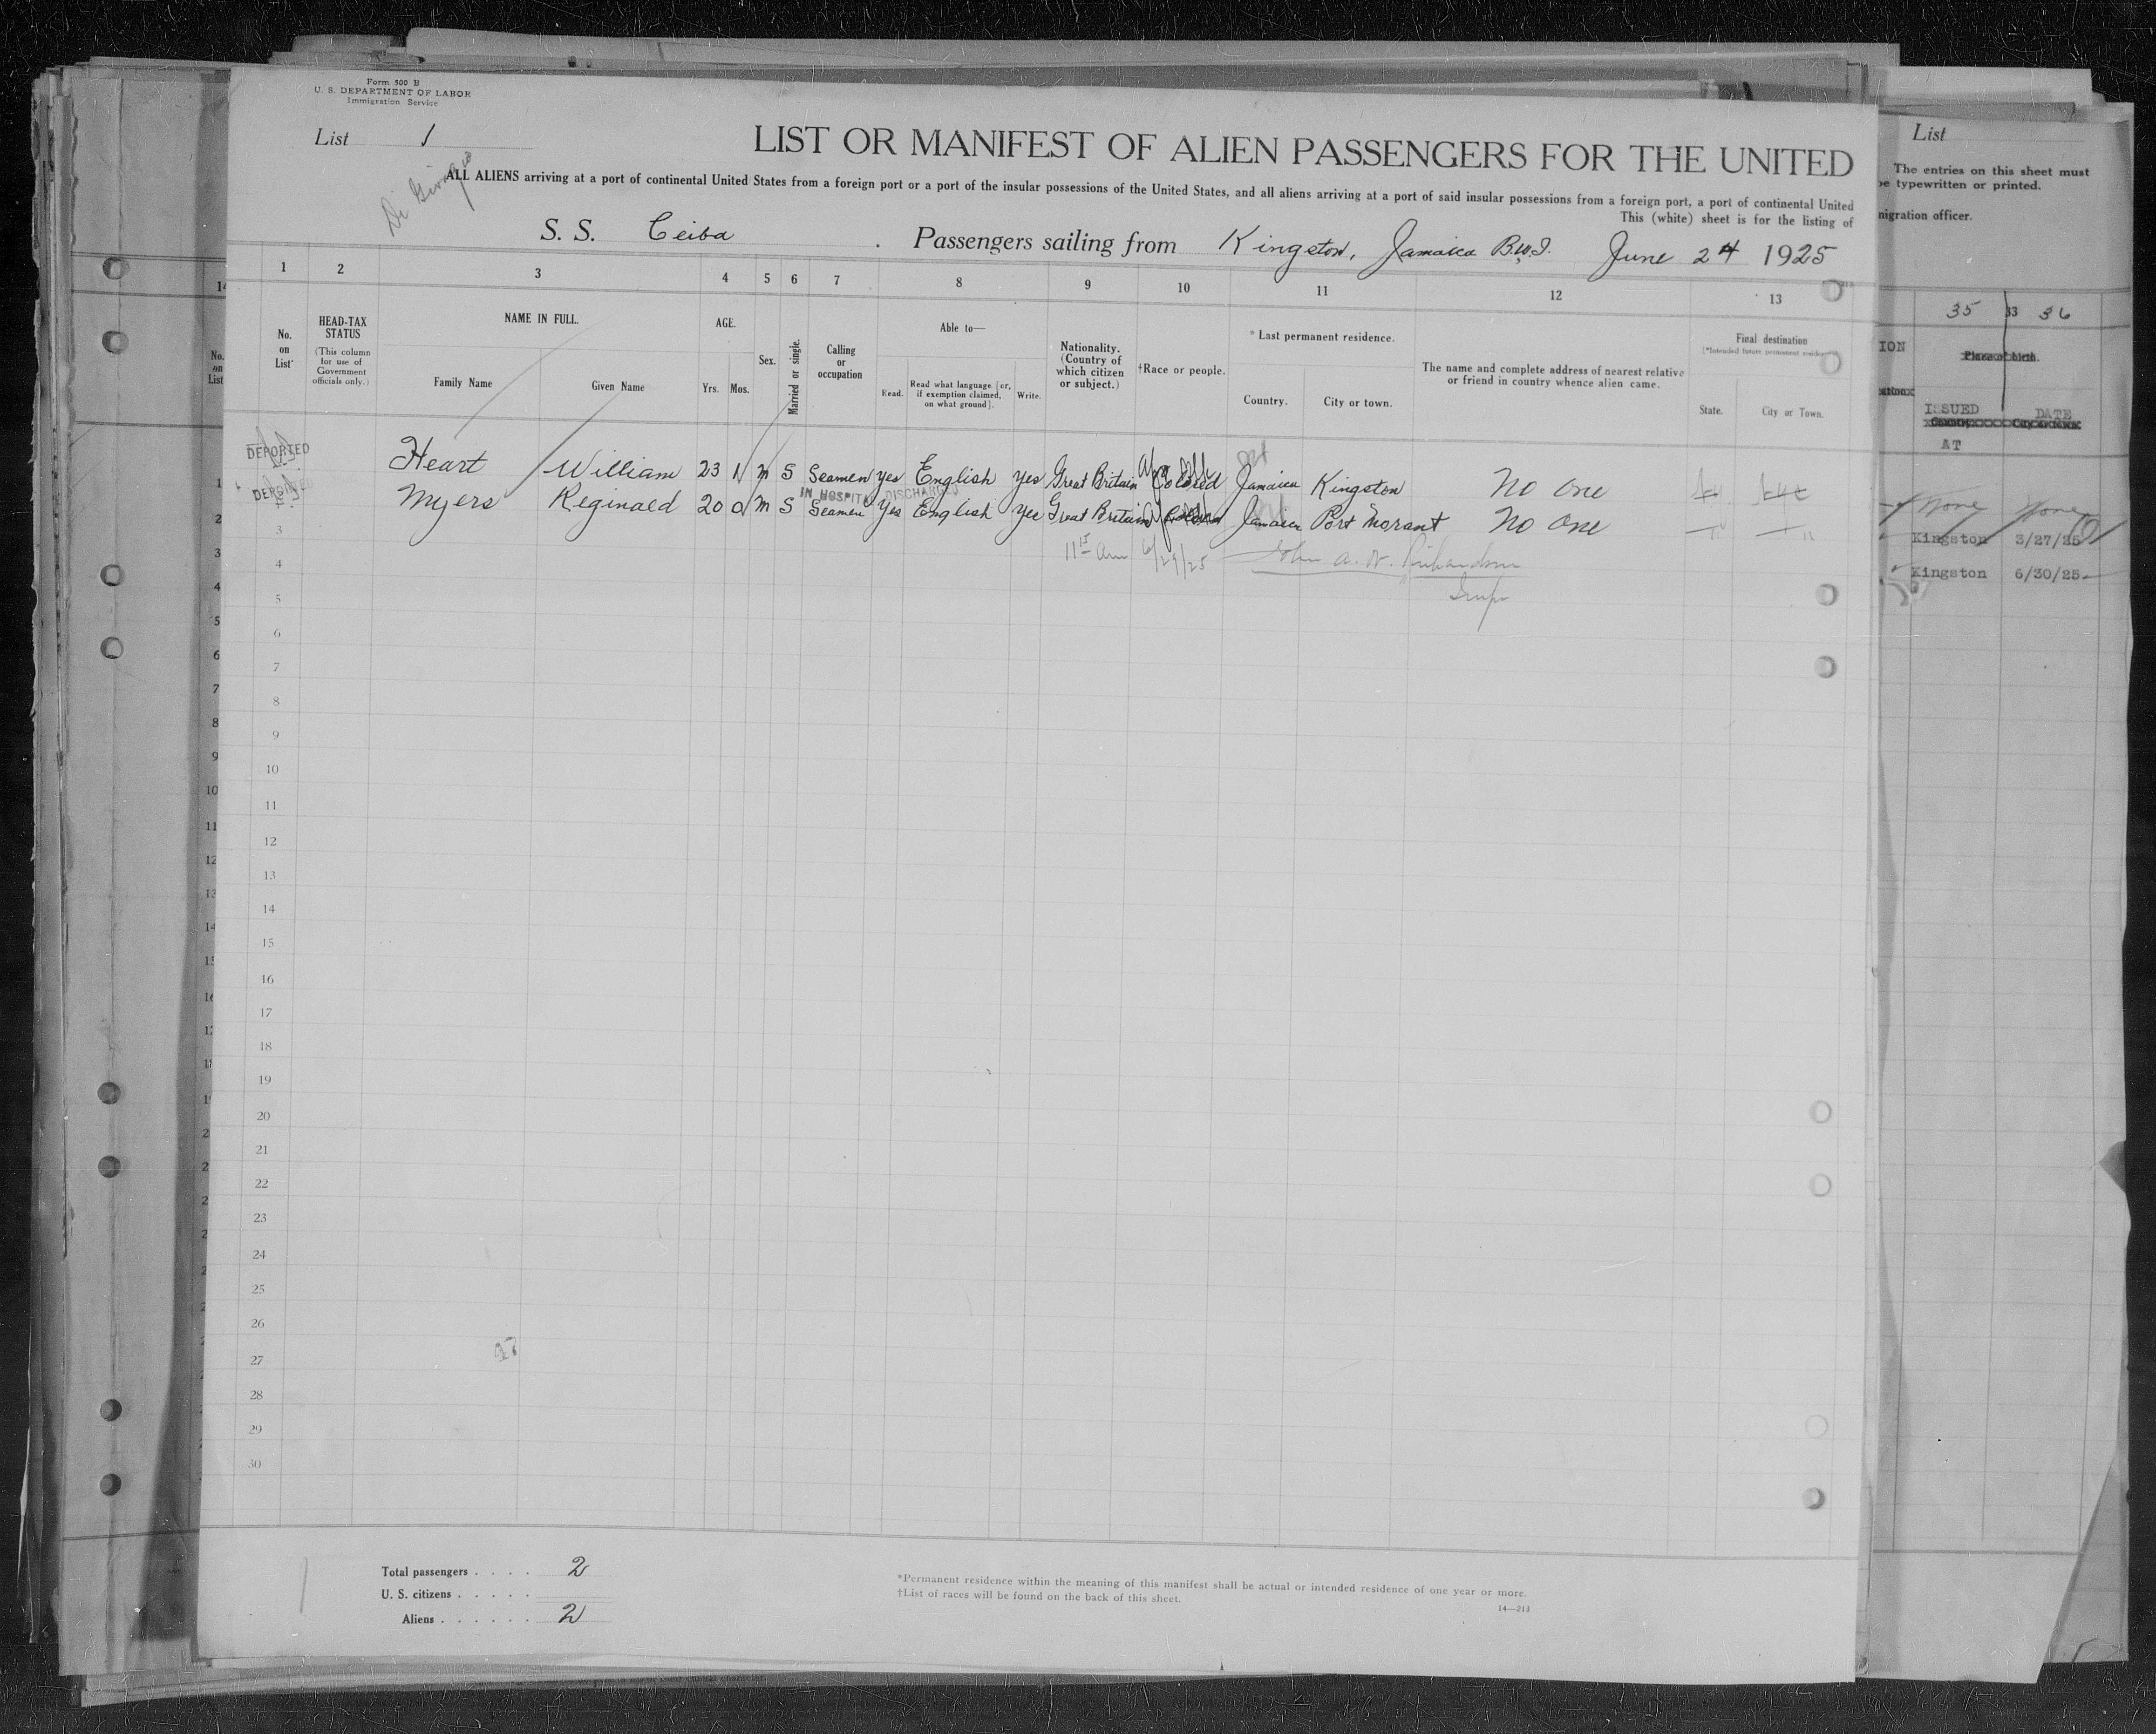 Form 500 B
U. S. DEPARTMENT OF LABOR
Immigration Service
List 1
LIST OR MANIFEST OF ALIEN PASSENGERS FOR THE UNITED
ALL ALIENS arriving at a port of continental United States from a foreign port or a port of the insular possessions of the United States, and all aliens arriving at a port of said insular possessions from a foreign port, a port of continental United
This (white) sheet is for the listing of
S. S. Ceiba . Passengers sailing from Kingston, Jamaica B.W.I. June 24 1925
1 2 3 4 5 6 7 8 9 10 11 12 13
No. on List
HEAD-TAX STATUS
(This column for use of Government officials only.)
NAME IN FULL.
Family Name
Given Name
AGE.
Yrs. Mos.
Sex.
Married or single.
Calling or occupation
Able to—
Read.
Read what language [or, if exemption claimed, on what ground].
Write.
Nationality. (Country of which citizen or subject.)
†Race or people.
* Last permanent residence.
Country. City or town.
The name and complete address of nearest relative or friend in country whence alien came.
Final destination
(*Intended future permanent residence)
State. City or Town.
DEPORTED
Heart William 23 1 m S Seamen yes English yes Great Britain Colored Jamaica Kingston No one
IN HOSPITAL DISCHARGED
DEPORTED
Myers Reginald 20 0 m S Seamen yes English yes Great Britain Jamaica Port Morant No one
3
11 15 am 6/29/25 John A. W. Richardson
4
Insp
5
6
7
8
9
10
11
12
13
14
15
16
17
18
19
20
21
22
23
24
25
26
27
28
29
30
Total passengers . . . . 2
U. S. citizens . . . . .
Aliens . . . . . . 2
*Permanent residence within the meaning of this manifest shall be actual or intended residence of one year or more.
†List of races will be found on the back of this sheet.
14—213
List
The entries on this sheet must
be typewritten or printed.
nigration officer.
35 33 36
ION
Place of birth.
ISSUED DATE
AT
None None
Kingston 3/27/25
Kingston 6/30/25
14
No. on List
1
2
3
4
5
6
7
8
9
10
11
12
13
14